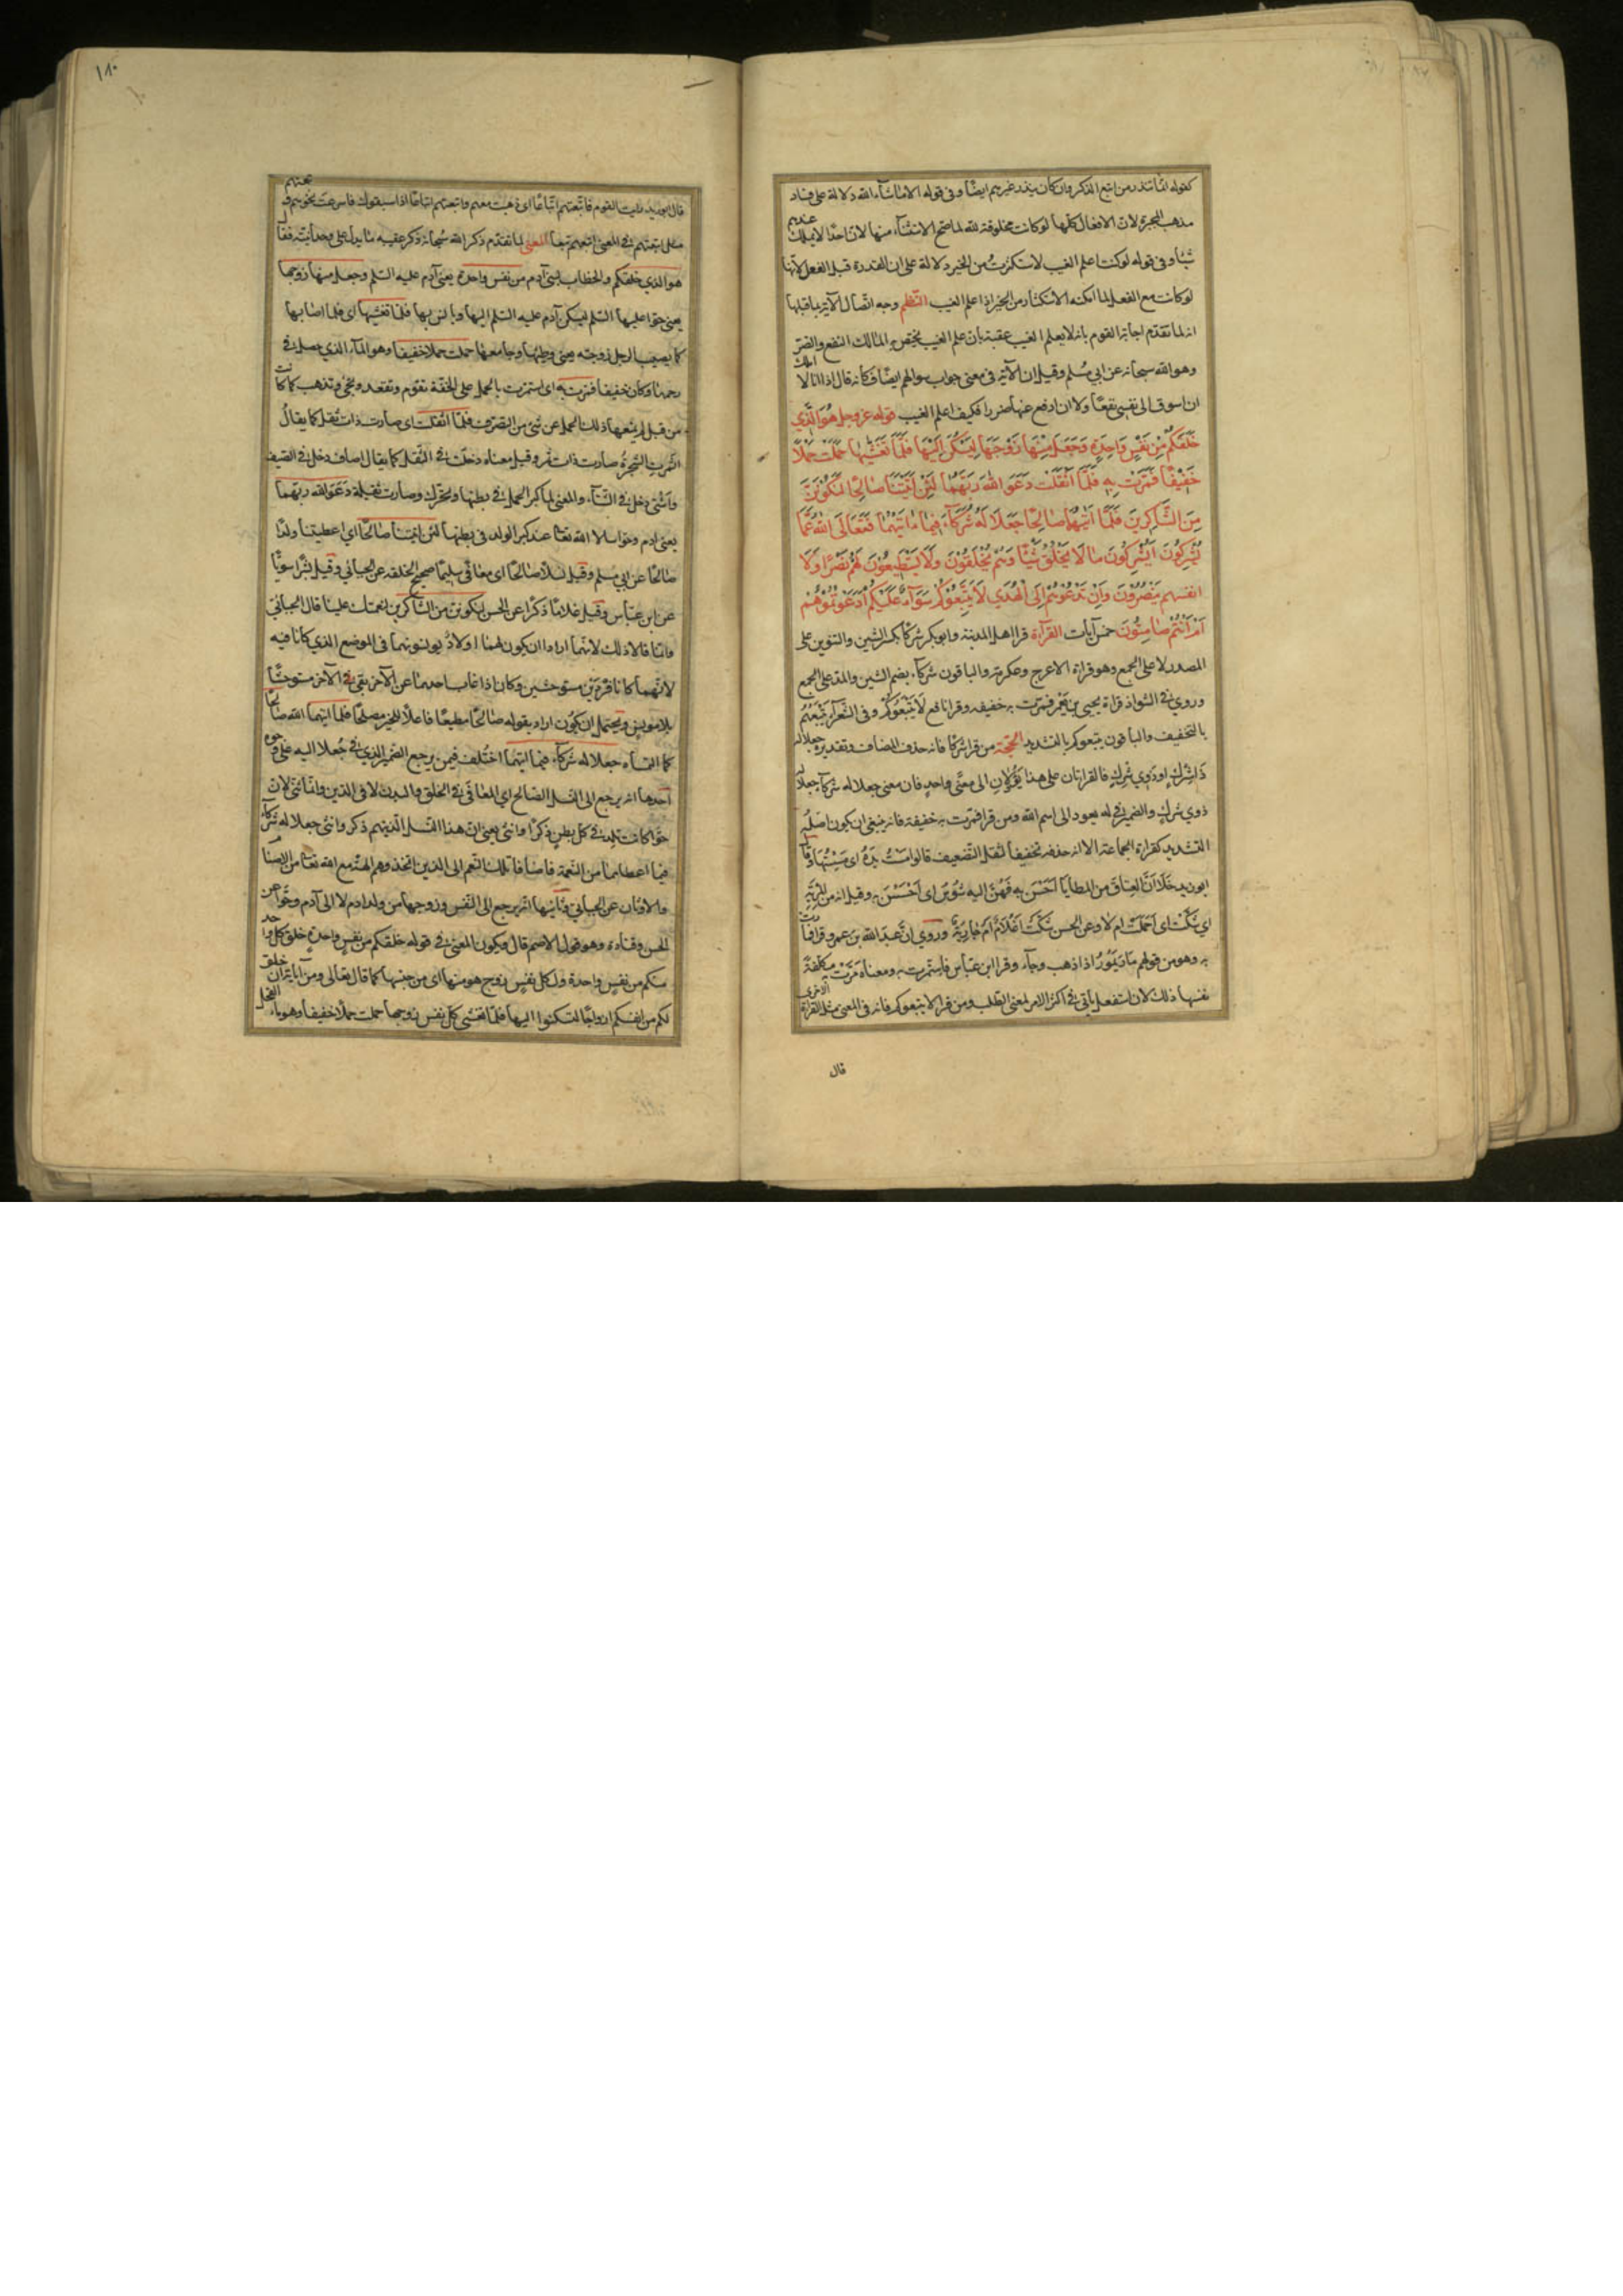 كقوله انما تنذر من اتبع الذكر وان كان ينذر غيرهم ايضا وفي قوله الا ما شاء الله دلالة على فساد
مذهب المجبرة لان الافعال كلها لو كانت مخلوقة لله لما صح الاستثناء منها لان احدا لا يملك عندهم
شيئا وفي قوله لو كنت اعلم الغيب لاستكثرت من الخير دلالة على ان القدرة قبل الفعل لانها
لو كانت مع الفعل لما امكنه الاستكثار من الخير اذا علم الغيب النظم وجه اتصال الآية بما قبلها
انه لما تقدم اجابة القوم بانه لا يعلم الغيب عقبه بان علم الغيب يختص به المالك النفع والضر
وهو الله سبحانه عن ابي مسلم وقيل ان الآية في معنى جواب سوالهم ايضا فكانه قال اذا انا لا املك
ان اسوق الى نفسي نفعا ولا ان ادفع عنها ضررا فكيف اعلم الغيب قوله عز وجل هُوَ الَّذِي
خَلَقَكُمْ مِنْ نَفْسٍ وَاحِدَةٍ وَجَعَلَ مِنْهَا زَوْجَهَا لِيَسْكُنَ اِلَيْهَا فَلَمَّا تَغَشّٰيهَا حَمَلَتْ حَمْلًا
خَفِيفًا فَمَرَّتْ بِهِ فَلَمَّا اَثْقَلَتْ دَعَوَا اللهَ رَبَّهُمَا لَئِنْ اٰتَيْتَنَا صَالِحًا لَنَكُونَنَّ
مِنَ الشَّاكِرِينَ فَلَمَّا اٰتٰيهُمَا صَالِحًا جَعَلَا لَهُ شُرَكَاءَ فِيمَا اٰتٰيهُمَا فَتَعَالَى اللهُ عَمَّا
يُشْرِكُونَ اَيُشْرِكُونَ مَا لَا يَخْلُقُ شَيْئًا وَهُمْ يُخْلَقُونَ وَلَا يَسْتَطِيعُونَ لَهُمْ نَصْرًا وَلَا
انفسهم يَنْصُرُونَ وَاِنْ تَدْعُوهُمْ اِلَى الْهُدَى لَا يَتَّبِعُوكُمْ سَوَاءٌ عَلَيْكُمْ اَدَعَوْتُمُوهُمْ
اَمْ اَنْتُمْ صَامِتُونَ خمس آيات القراءة قرا اهل المدينة وابو بكر شركا بكسر الشين والتنوين على
المصدر لا على الجمع وهو قراءة الاعرج وعكرمة والباقون شركاء بضم الشين والمد على الجمع
وروي في الشواذ قراءة يحيى بن يعمر فمرت به خفيفه وقرا نافع لا يتبعوكم وفي الشعراء يتبعهم
بالتخفيف والباقون يتبعوكم بالتشديد الحجة من قرا شركا فانه حذف المضاف وتقديره جعلا له
ذا شرك او ذوي شرك فالقراءتان على هذا يؤولان الى معنى واحد فان معنى جعلا له شركاء جعلا له
ذوي شرك والضمير في له يعود الى اسم الله ومن قرا فمرت به خفيفة فانه ينبغي ان يكون اصله
التشديد كقراءة الجماعة الا انه حذفه تخفيفا لثقل التضعيف قالوا مست يده اى مسستها وقال
ابو زيد خلا ان العتاق من المطايا احسن به فهن اليه شوس اى احسسن به وقيل انه من المرية
اي شكت اى احملت ام لا وعن الحسن شكت اغلام ام جارية وروي ان عبد الله بن عمرو قرا فمارت
به وهو من قولهم مار يمور اذا ذهب وجاء وقرا ابن عباس فاستمرت به ومعناه مرت مكلفة
نفسها ذلك لان استفعل ياتي في اكثر الامر لمعنى الطلب ومن قرا لا يتبعوكم فانه في المعنى مثل القراءة الاخرى
قال
١٨٠
قال ابو زيد رايت القوم فاتبعتهم اتباعا اى ذهبت معهم واتبعتهم اتباعا اذا سبقوك فاسرعت نحوهم و
مثل تبعتهم في المعنى اتبعهم تبعا المعنى لما تقدم ذكر الله سبحانه ذكر عقيبه ما يدل على وحدانيته فقال
هو الذي خلقكم والخطاب لبني آدم من نفس واحدة يعني آدم عليه السلم وجعل منها زوجها
يعني حوا عليها السلم ليسكن آدم عليه السلم اليها ويانس بها فلما تغشيها اى فلما اصابها
كما يصيب الرجل زوجته يعني وطيها وجامعها حملت حملا خفيفا وهو الماء الذي حصل في
رحمها وكان خفيفا فمرت به اى استمرت بالحمل على الخفة تقوم وتقعد وتجيء وتذهب كما كانت
من قبل لم يمنعها ذلك الحمل عن شئ من التصرف فلما اثقلت اى صارت ذات ثقل كما يقال
اثمرت الشجرة صارت ذات ثمر وقيل معناه دخلت في الثقل كما يقال اصاف دخل في الصيف
واشتى دخل في الشتاء والمعنى لما كبر الحمل في بطنها وتحرك وصارت ثقيلة دعوا الله ربهما
يعني ادم وحوا سالا الله تعا عند كبر الولد في بطنها لئن اتيتنا صالحا اي اعطيتنا ولدا
صالحا عن ابي مسلم وقيل نسلا صالحا اى معافى سليما صحيح الخلقه عن الجبائي وقيل بشرا سويا
عن ابن عباس وقيل غلاما ذكرا عن الحسن لنكونن من الشاكرين لنعمتك علينا قال الجبائي
وانما قالا ذلك لانهما ارادا ان يكون لهما اولاد يونسونهما في الموضع الذي كانا فيه
لانهما كانا فردين مستوحشين وكان اذا غاب احدهما عن الآخر بقي الآخر مستوحشا
بلا مونس ويحتمل ان يكون اراد بقوله صالحا مطيعا فاعلا للخير مصلحا فلما اتيهما الله صالحا
كما التمساه جعلا له شركاء فيما اتيهما اختلف فيمن يرجع الضمير الذي في جعلا اليه على وجوه
احدها انه يرجع الى النسل الصالح اي المعافى في الخلق والبدن لا في الدين وانما ثنى لان
حوا كانت تلد في كل بطن ذكرا وانثى يعني ان هذا النسل الذين هم ذكر وانثى جعلا له شركاء
فيما اعطاهما من النعمة فاضافا تلك النعم الى الذين اتخذوهم الهة مع الله تعا من الاصنام
والاوثان عن الجبائي وثانيها انه يرجع الى النفس وزوجها من ولد ادم لا الى آدم وحوا عن
الحسن وقتادة وهو قول الاصم قال ويكون المعنى في قوله خلقكم من نفس واحدة خلق كل واحد
منكم من نفس واحدة ولكل نفس زوج هو منها اى من جنسها كما قال تعالى ومن آياته ان خلق
لكم من انفسكم ازواجا لتسكنوا اليها فلما تغشى كل نفس زوجها حملت حملا خفيفا وهو ماء الفحل